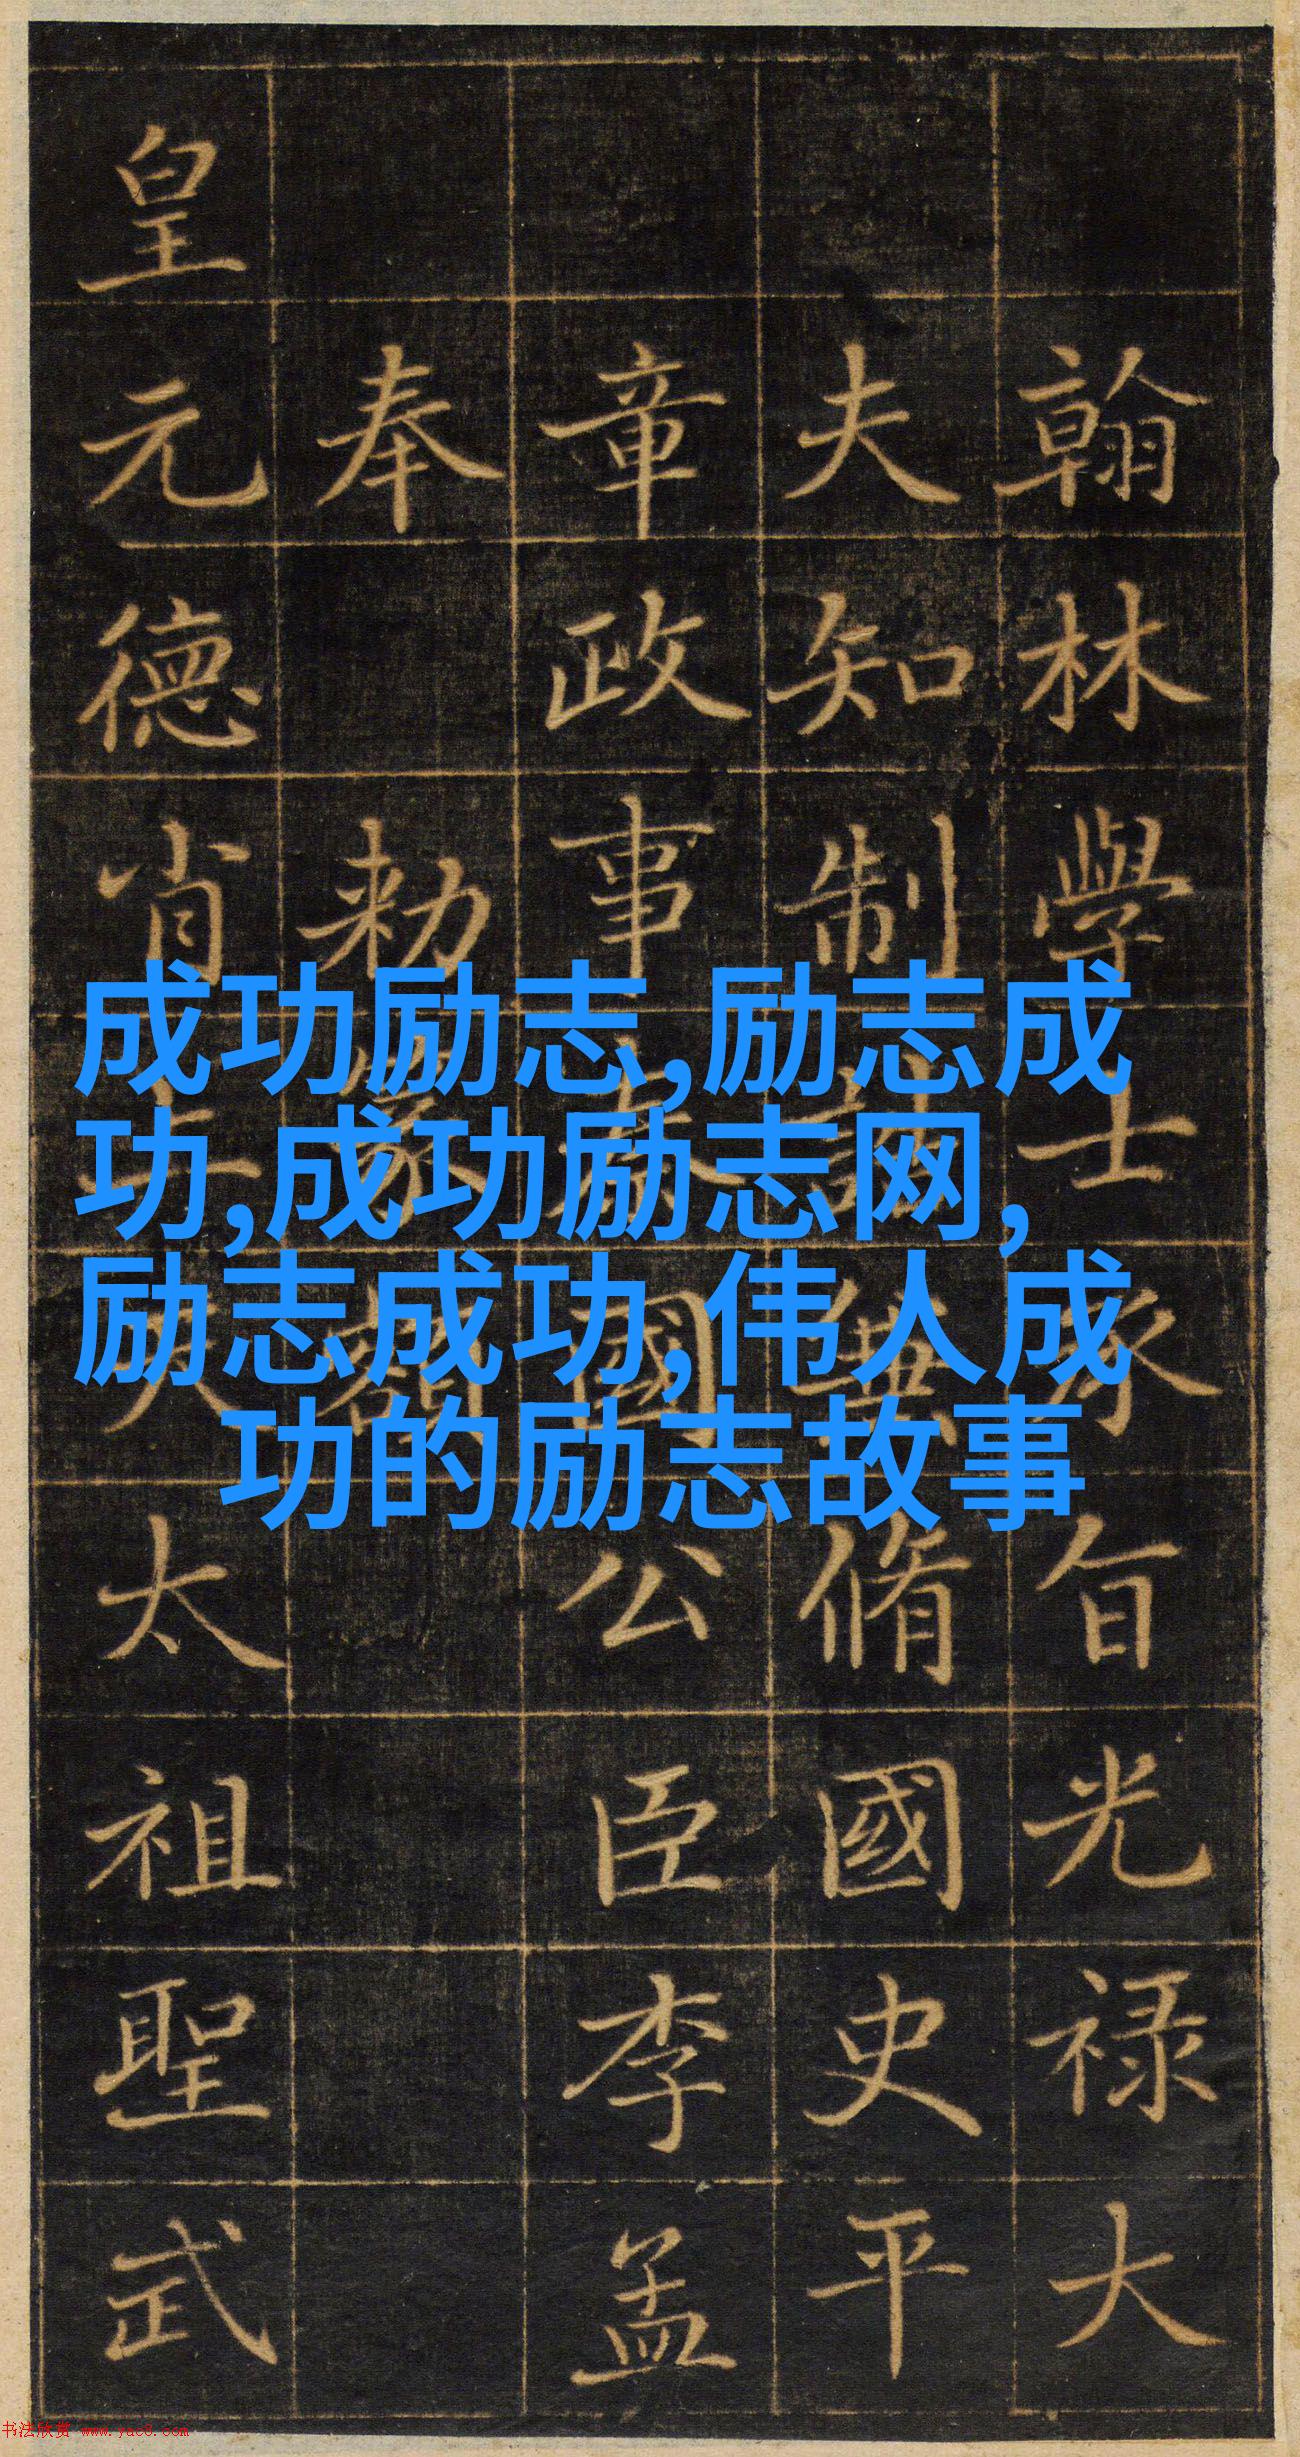 翰林學士承旨光禄大
夫知制誥兼脩國史平
章政事秦國公臣李孟
奉 勑篆額
皇元德肖上天太祖聖武
成功励志,励志成
功,成功励志网,
励志成功,伟人成
功的励志故事
书法欣赏 www.yac8.com